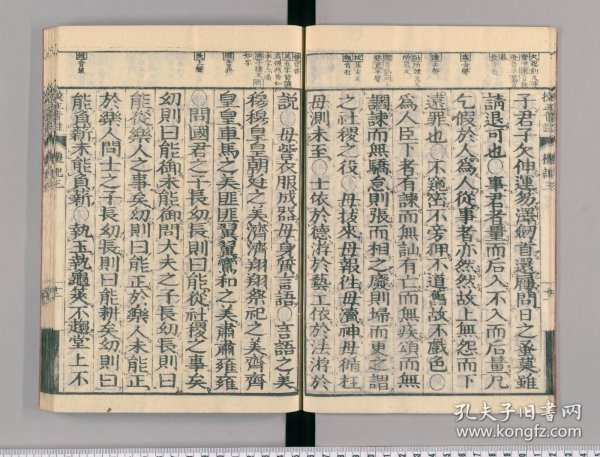 子君子欠伸運笏澤劍首還屨問日之蚤莫雖
請退可也○事君者量而后入不入而后量凡
乞假於人為人從事者亦然然故上無怨而下
遠罪也○不窺密不旁狎不道舊故不戲色○
為人臣下者有諫而無訕有亡而無疾頌而無
諂諫而無驕怠則張而相之廢則埽而更之謂
之社稷之役○毋拔來毋報往毋瀆神毋循枉
毋測未至○士依於德游於藝工依於法游於
說○毋訾衣服成器毋身質言語○言語之美
穆穆皇皇朝廷之美濟濟翔翔祭祀之美齊齊
皇皇車馬之美匪匪翼翼鸞和之美肅肅雍雍
○問國君之子長幼長則曰能從社稷之事矣
幼則曰能御未能御問大夫之子長幼長則曰
能從樂人之事矣幼則曰能正於樂人未能正
於樂人問士之子長幼長則曰能耕矣幼則曰
能負薪未能負薪○執玉執龜筴不趨堂上不
孔夫子旧书网
www.kongfz.com